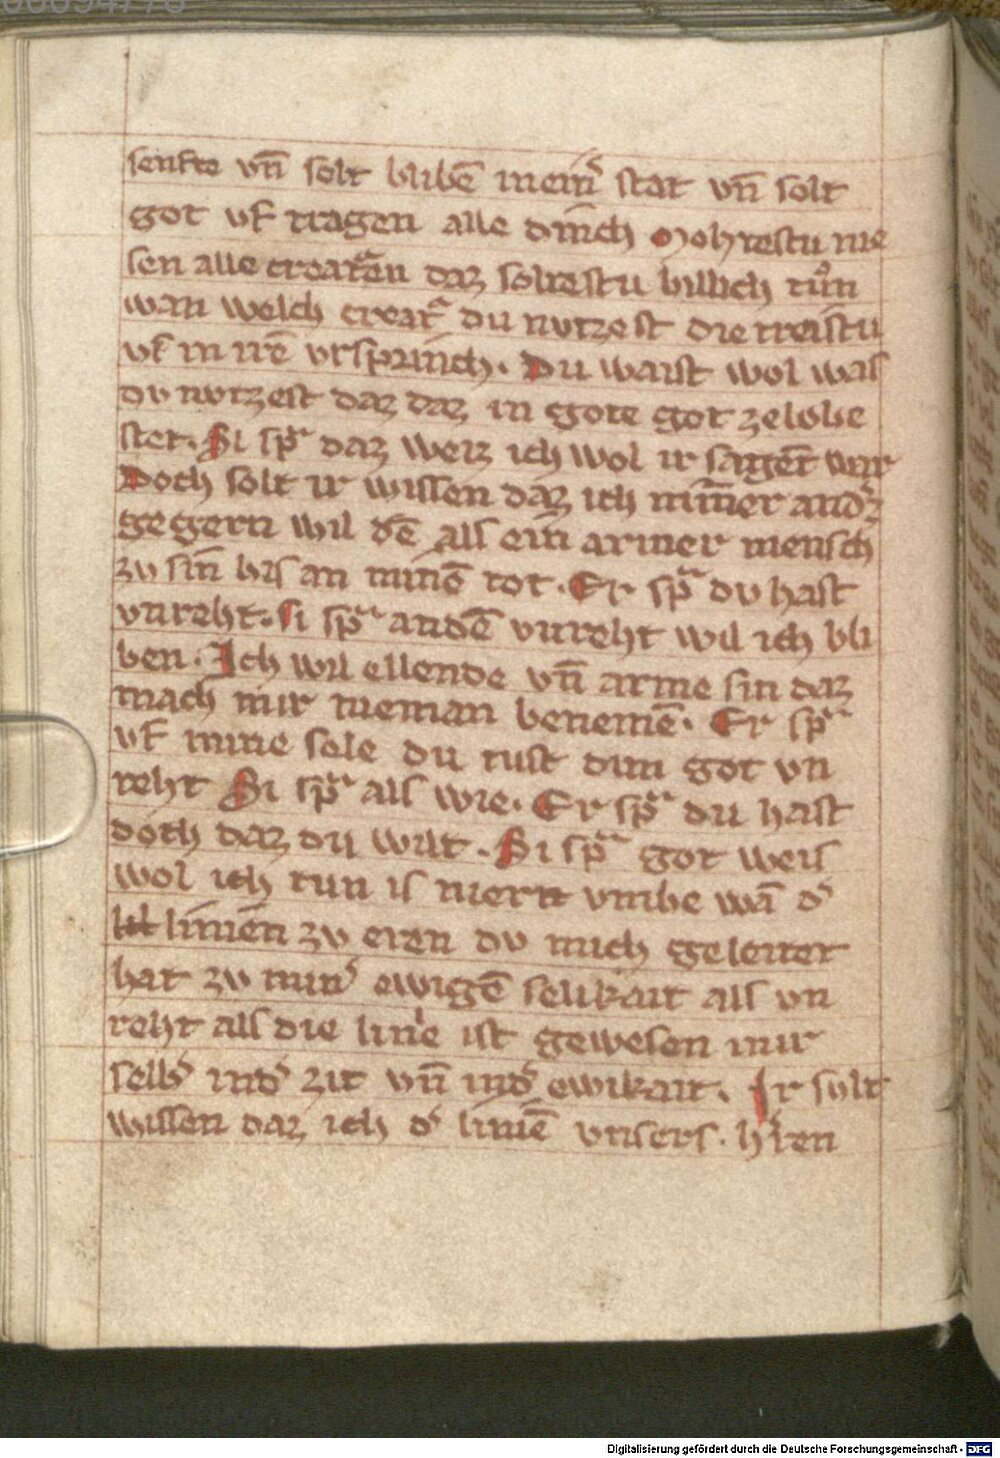 senfte vn̄ solt blibē in einͤ stat vn̄ solt
got vf tragen alle dinch Mohtestu nie
sen alle creatᷓn daz soltestu billich tůn
wan welch creatᷓ du nvtzest die treistu
vf in irē vrsprinch. Du waist wol was
dv nvtzest daz daz in gote got ze lobe
stet. Si spᷓ daz weiz ich wol ir sagent wir
Doch solt ir wissen daz ich nim̄er andᷣz
gegern wil dē als ein armer mensch
zv sin bis an minē tot. Er spᷓ dv hast
vnreht. Si spᷓ an dē vnreht wil ich bli
ben. Ich wil ellende vn̄ arme sin daz
mach mir nieman benemē. Er spᷓ
vf mine sele du tust dim got vn
reht Si spᷓ als wie. Er spᷓ du hast
doch daz du wilt. Si spᷓ got weis
wol ich tun is niern vmbe wā dᷣ
linien zv eren dv mich geleitet
hat zv minᷣ ewigē selikait als vn
reht als die linie ist gewesen mir
selbᷣ in dᷣ zit vn̄ in dᷣ ewikait. Ir sult
wissen daz ich dᷣ liniē vnsers. h'ren
Digitalisierung gefördert durch die Deutsche Forschungsgemeinschaft - DFG